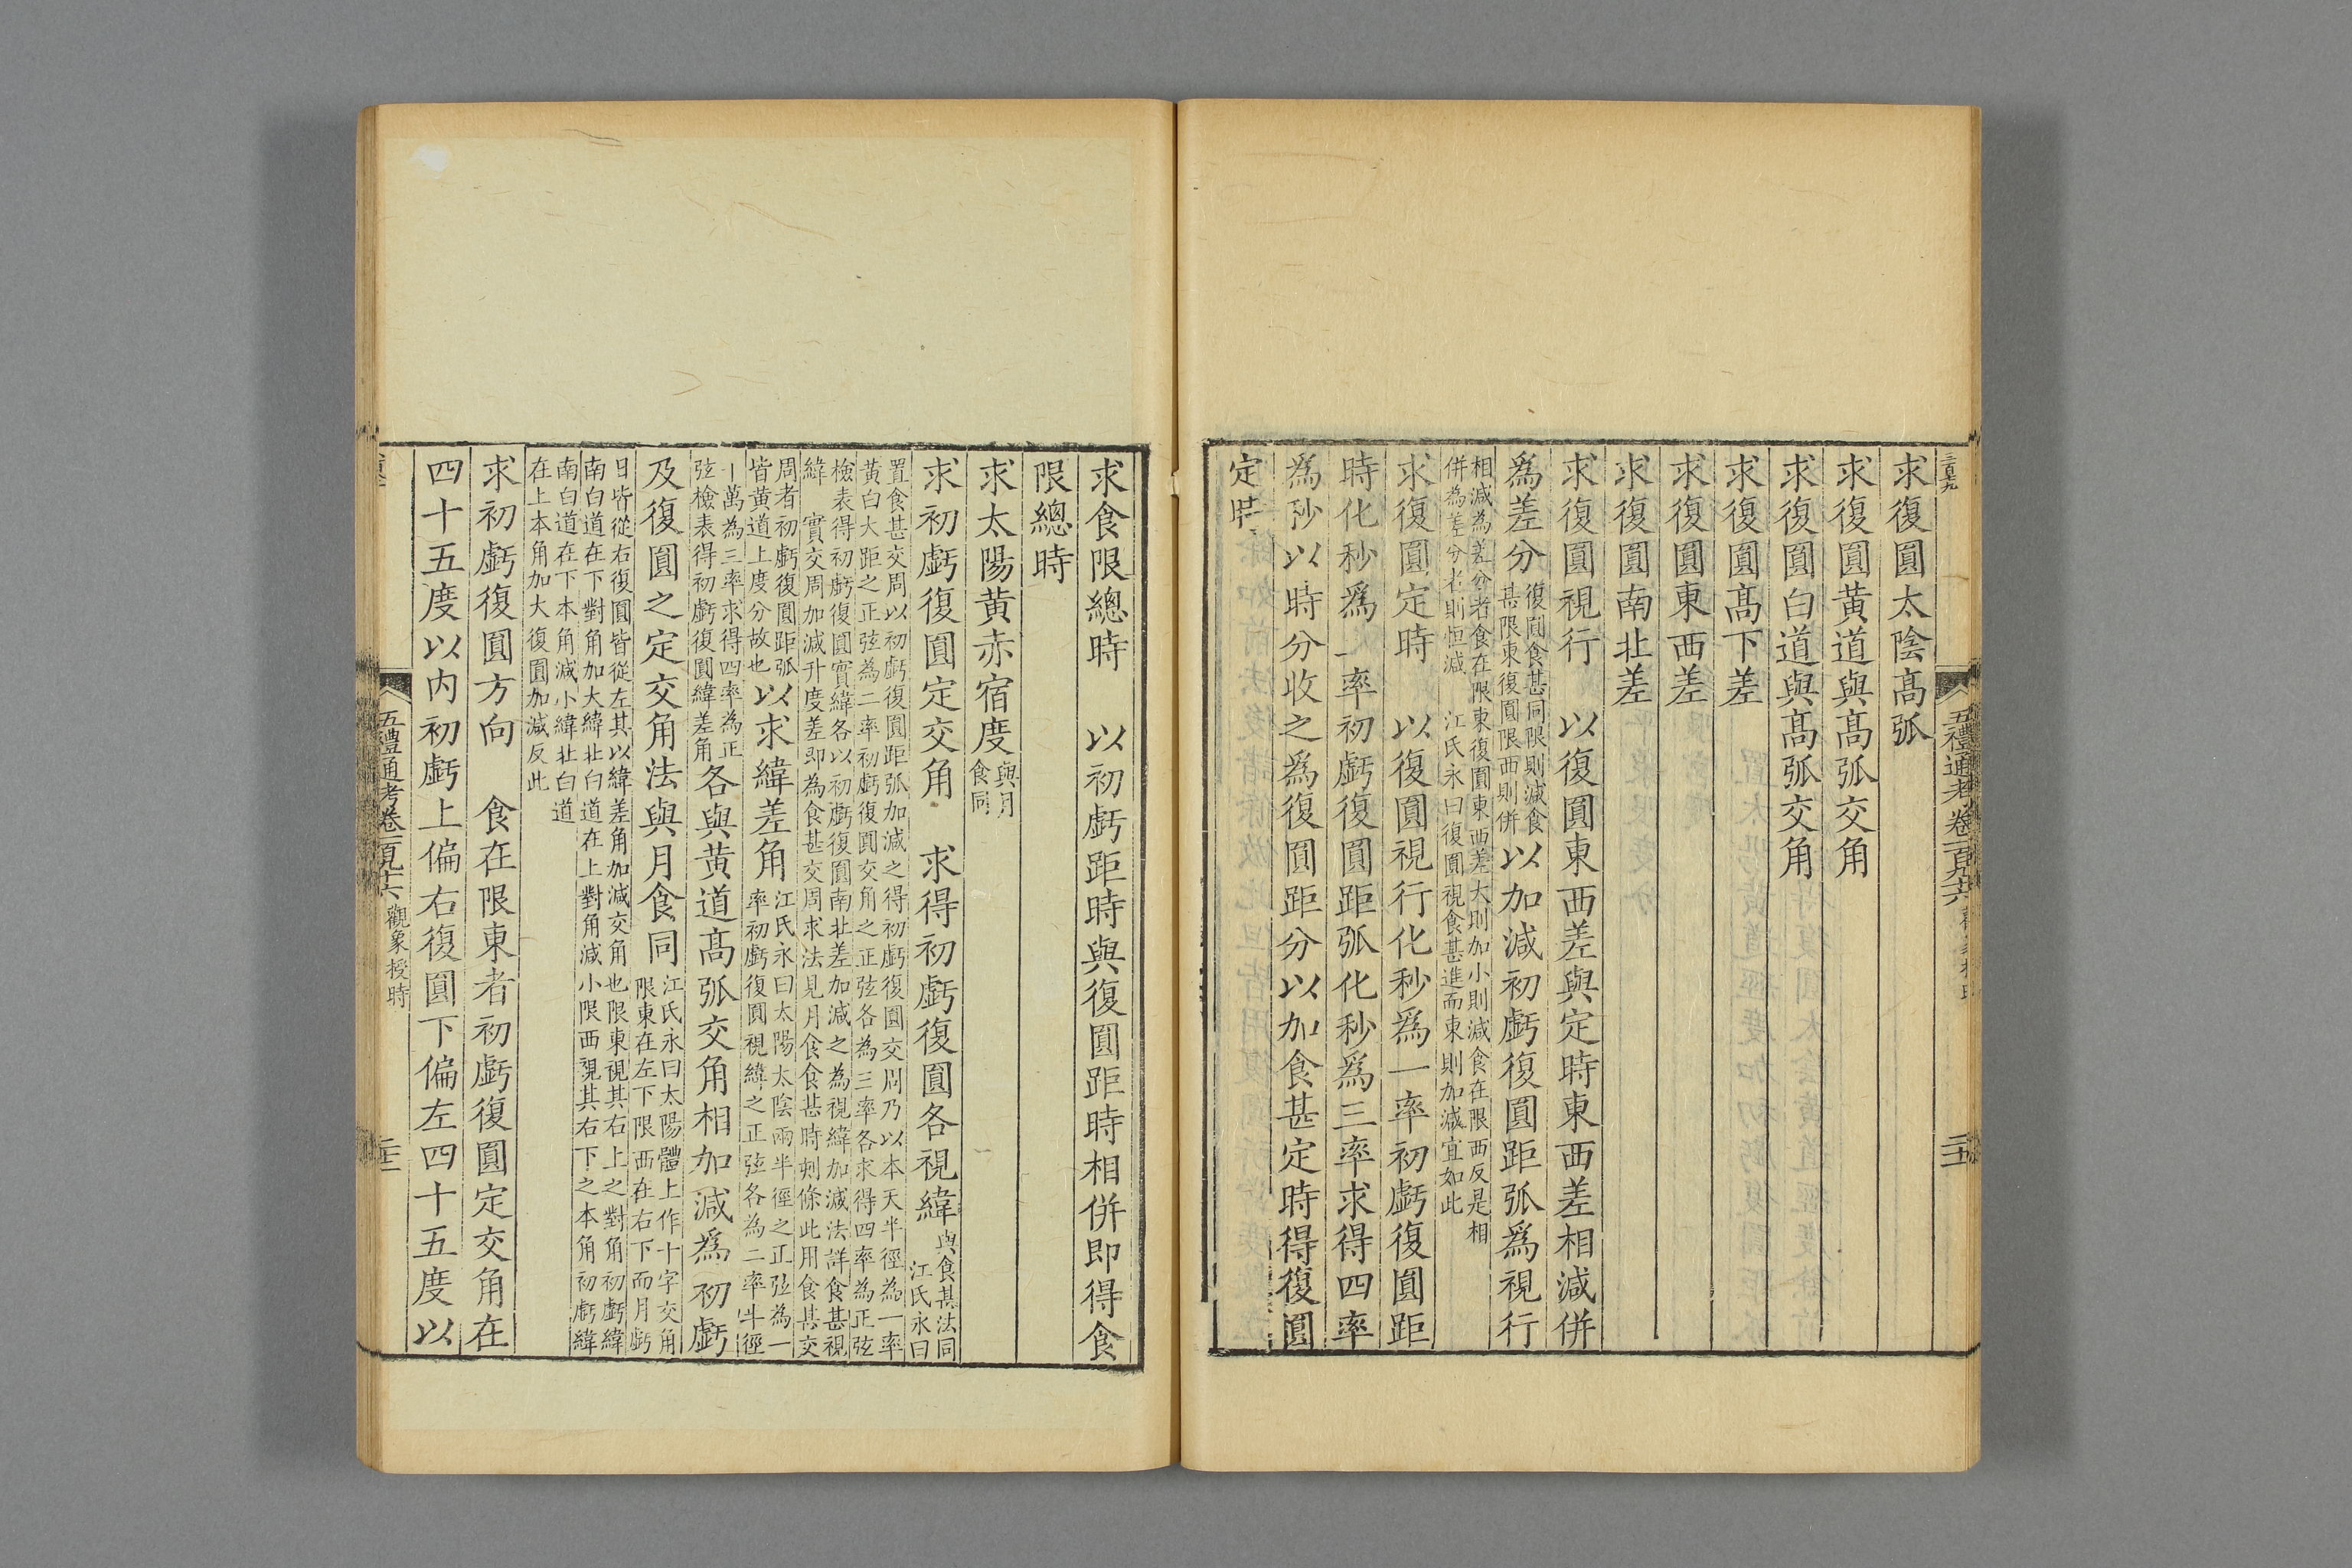 五禮通考卷一百九十六
求復圓太陰髙弧
求復圓黄道與髙弧交角
求復圓白道與髙弧交角
求復圓髙下差
求復圓東西差
求復圓南北差
求復圓視行　以復圓東西差與定時東西差相減併
爲差分復圓食甚同限則減食甚限東復圓限西則併以加減初虧復圓距弧爲視行
相減為差分者食在限東復圓東西差大則加小則減食在限西反是相
併為差分者則恒減　江氏永曰復圓視食甚進而東則加減宜如此
求復圓定時　以復圓視行化秒爲一率初虧復圓距
時化秒爲二率初虧復圓距弧化秒爲三率求得四率
爲秒以時分收之爲復圓距分以加食甚定時得復圓
定時
求食限總時　以初虧距時與復圓距時相併即得食
限總時
求太陽黄赤宿度與月食同
求初虧復圓定交角　求得初虧復圓各視緯與食甚法同江氏永曰
置食甚交周以初虧復圓距弧加減之得初虧復圓交周乃以本天半徑為一率
黄白大距之正弦為二率初虧復圓交角之正弦各為三率各求得四率為正弦
檢表得初虧復圓實緯各以初虧復圓南北差加減之為視緯加減法詳食甚視
緯　實交周加減升度差即為食甚交周求法見月食食甚時刻條此用食甚交
周者初虧復圓距弧
皆黄道上度分故也以求緯差角江氏永曰太陽太陰兩半徑之正弦為一
率初虧復圓視緯之正弦各為二率半徑
一萬為三率求得四率為正
弦檢表得初虧復圓緯差角各與黄道髙弧交角相加減爲初虧
及復圓之定交角法與月食同江氏永曰太陽體上作十字交角
限東在左下限西在右下而月虧
日皆從右復圓皆從左其以緯差角加減交角也限東視其右上之對角初虧緯
南白道在下對角加大緯北白道在上對角減小限西視其右下之本角初虧緯
南白道在下本角減小緯北白道
在上本角加大復圓加減反此
求初虧復圓方向　食在限東者初虧復圓定交角在
四十五度以內初虧上偏右復圓下偏左四十五度以
五禮通考卷一百九十六　觀象授時